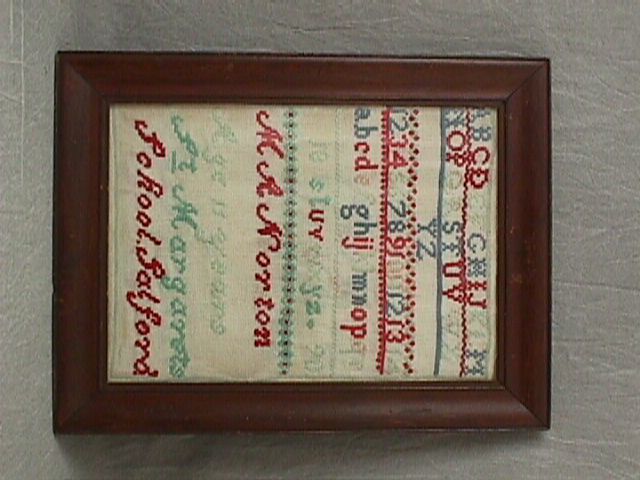 ABCD GHIJ M
NOP STUV
YZ
1234 789 1213
abcd ghij mnop
stuv yz.
M A Norton
Age 11 years
St Margarets
School. Salford